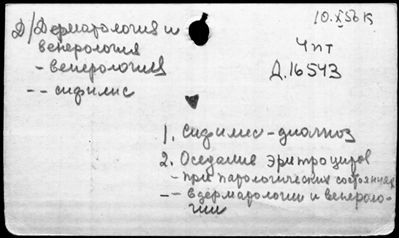 Д/Дерматология и
венерология
- венерология
-- сифилис
10.X.56 К
Чпт
Д.16543
1. Сифилис-диагноз
2. Оседание эритроцитов
- при патологических состояниях
-- в дерматологии и венероло-
гии